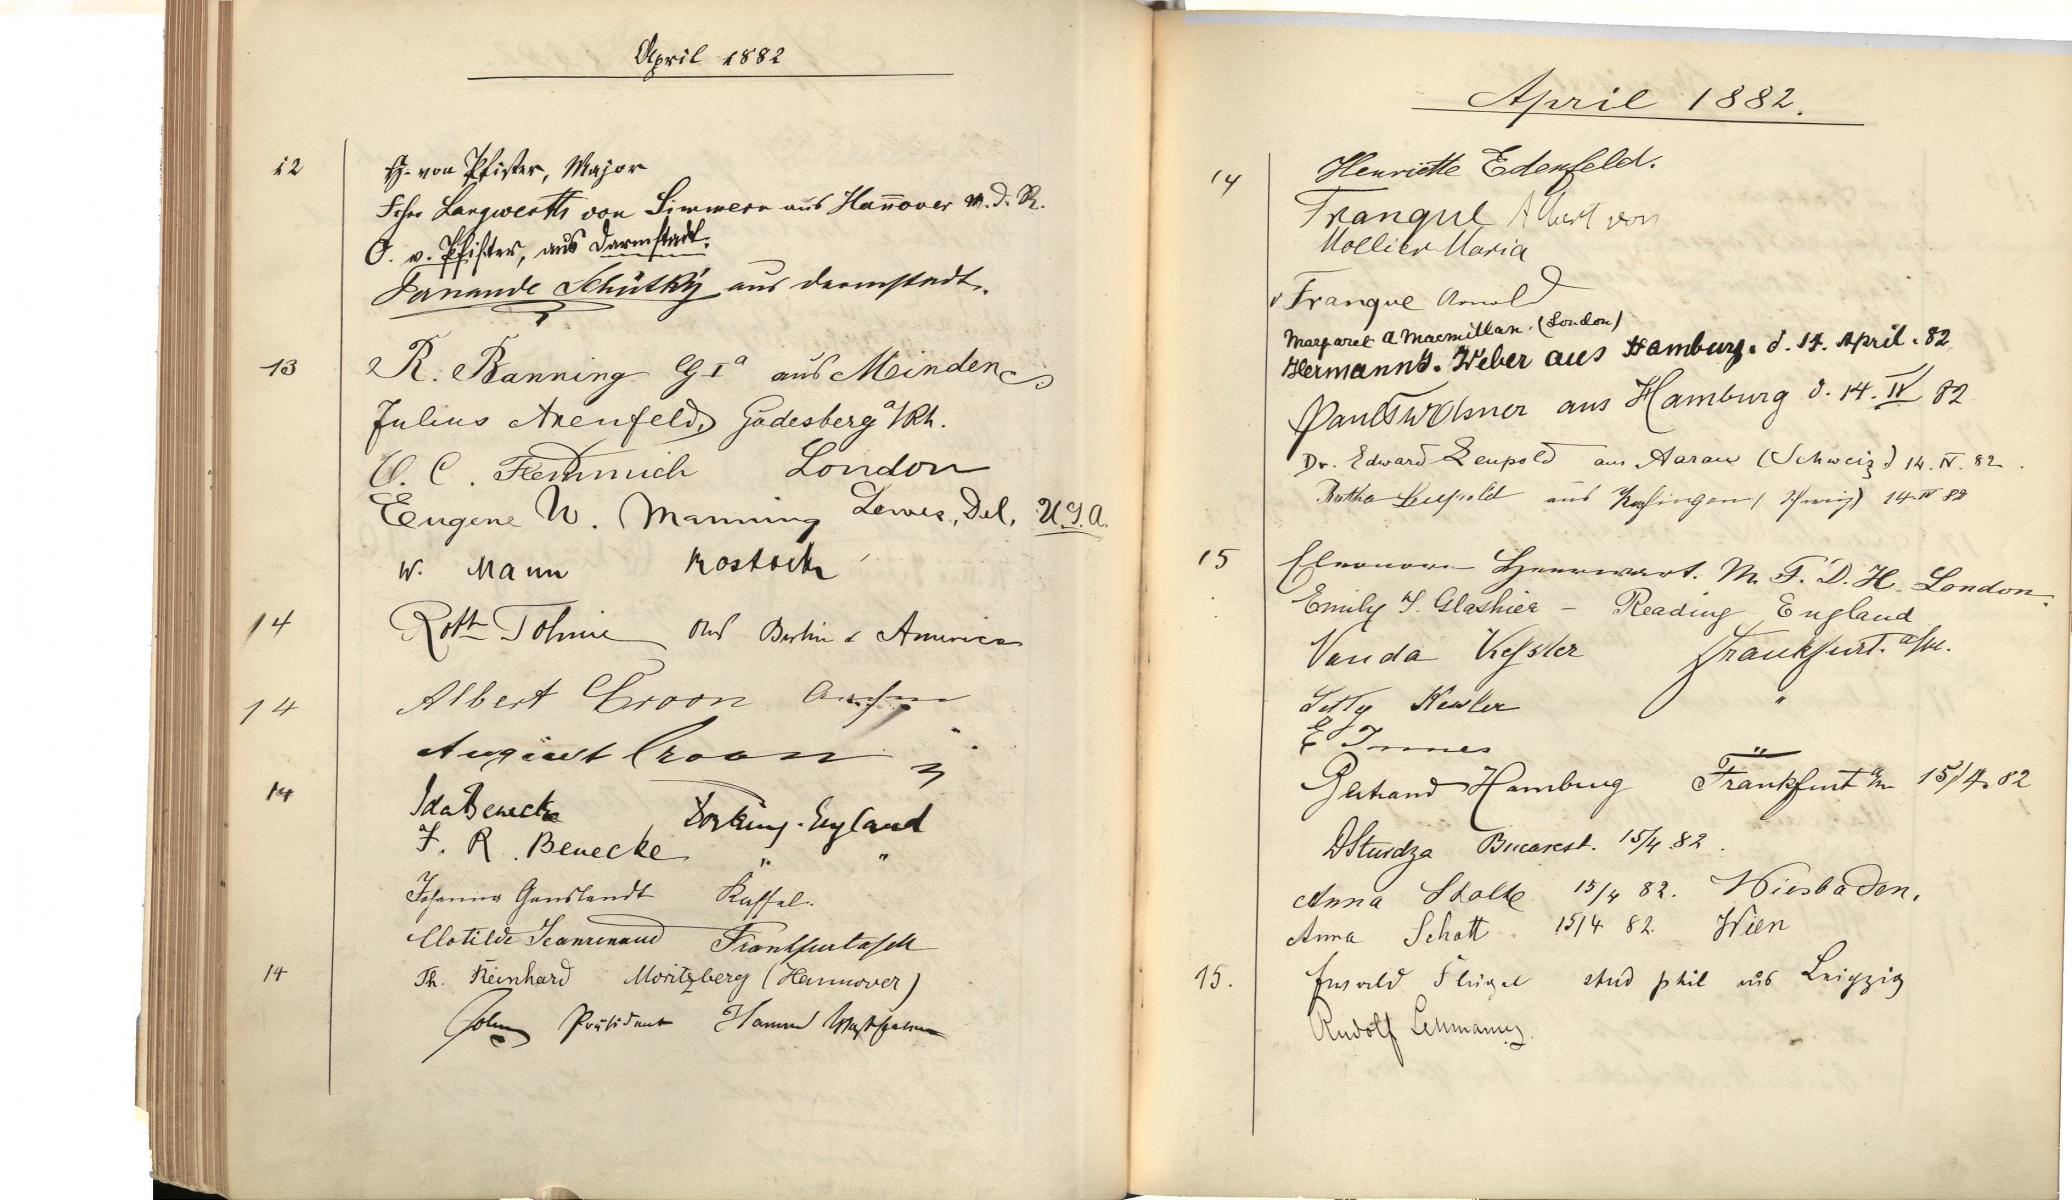 April 1882
12
H. von Pfister, Major
Frhr Langwerth von Simmern aus Hannover M. d. R.
O. v. Pfister, aus Darmstadt.
Fernande Schützky aus Darmstadt.
13
R. Banning G I a aus Minden
Julius Arenfeld, Godesberg a/Rh.
London
Eugene W. Manning Lewes, Del, U.S.A.
W. Mann Rostock
14
Roth Tolmie aus Berlin & America
14
Albert Croon
August Croon
14
Ida Benecke Dorking. England
F. R. Benecke " "
Johanna Kassel.
Clotilde Jeanrenaud Frankfurt a/M
14
Th. Reinhard Moritzberg (Hannover)
Präsident Hamm Westfalen
April 1882.
14
Henriette Edenfeld.
Franqué Albert von
Mollier Maria
v Franque Arnold
Margaret A Macmillan. (London)
Hermann S. Weber aus Hamburg. d. 14. April. 82
Paul aus Hamburg d. 14. IV 82
Dr. Edward Leupold aus Aarau (Schweiz) 14. IV. 82.
Bertha Leupold aus Zofingen (Schweiz) 14 IV 82
15
Eleonore Heerwart. M. F. D. H. London.
Emily S. Glashier - Reading England
Vanda Kessler Frankfurt. a/M.
Kessler "
E Innes
Gertrand Hamburg Frankfurt a/M 15/4. 82
DSturdza Bucarest. 15/4 82.
Anna Stolte 15/4 82. Wiesbaden.
Anna Schott 15/4 82. Wien
15.
Ewald Flügel stud phil aus Leipzig
Rudolf Lehmann